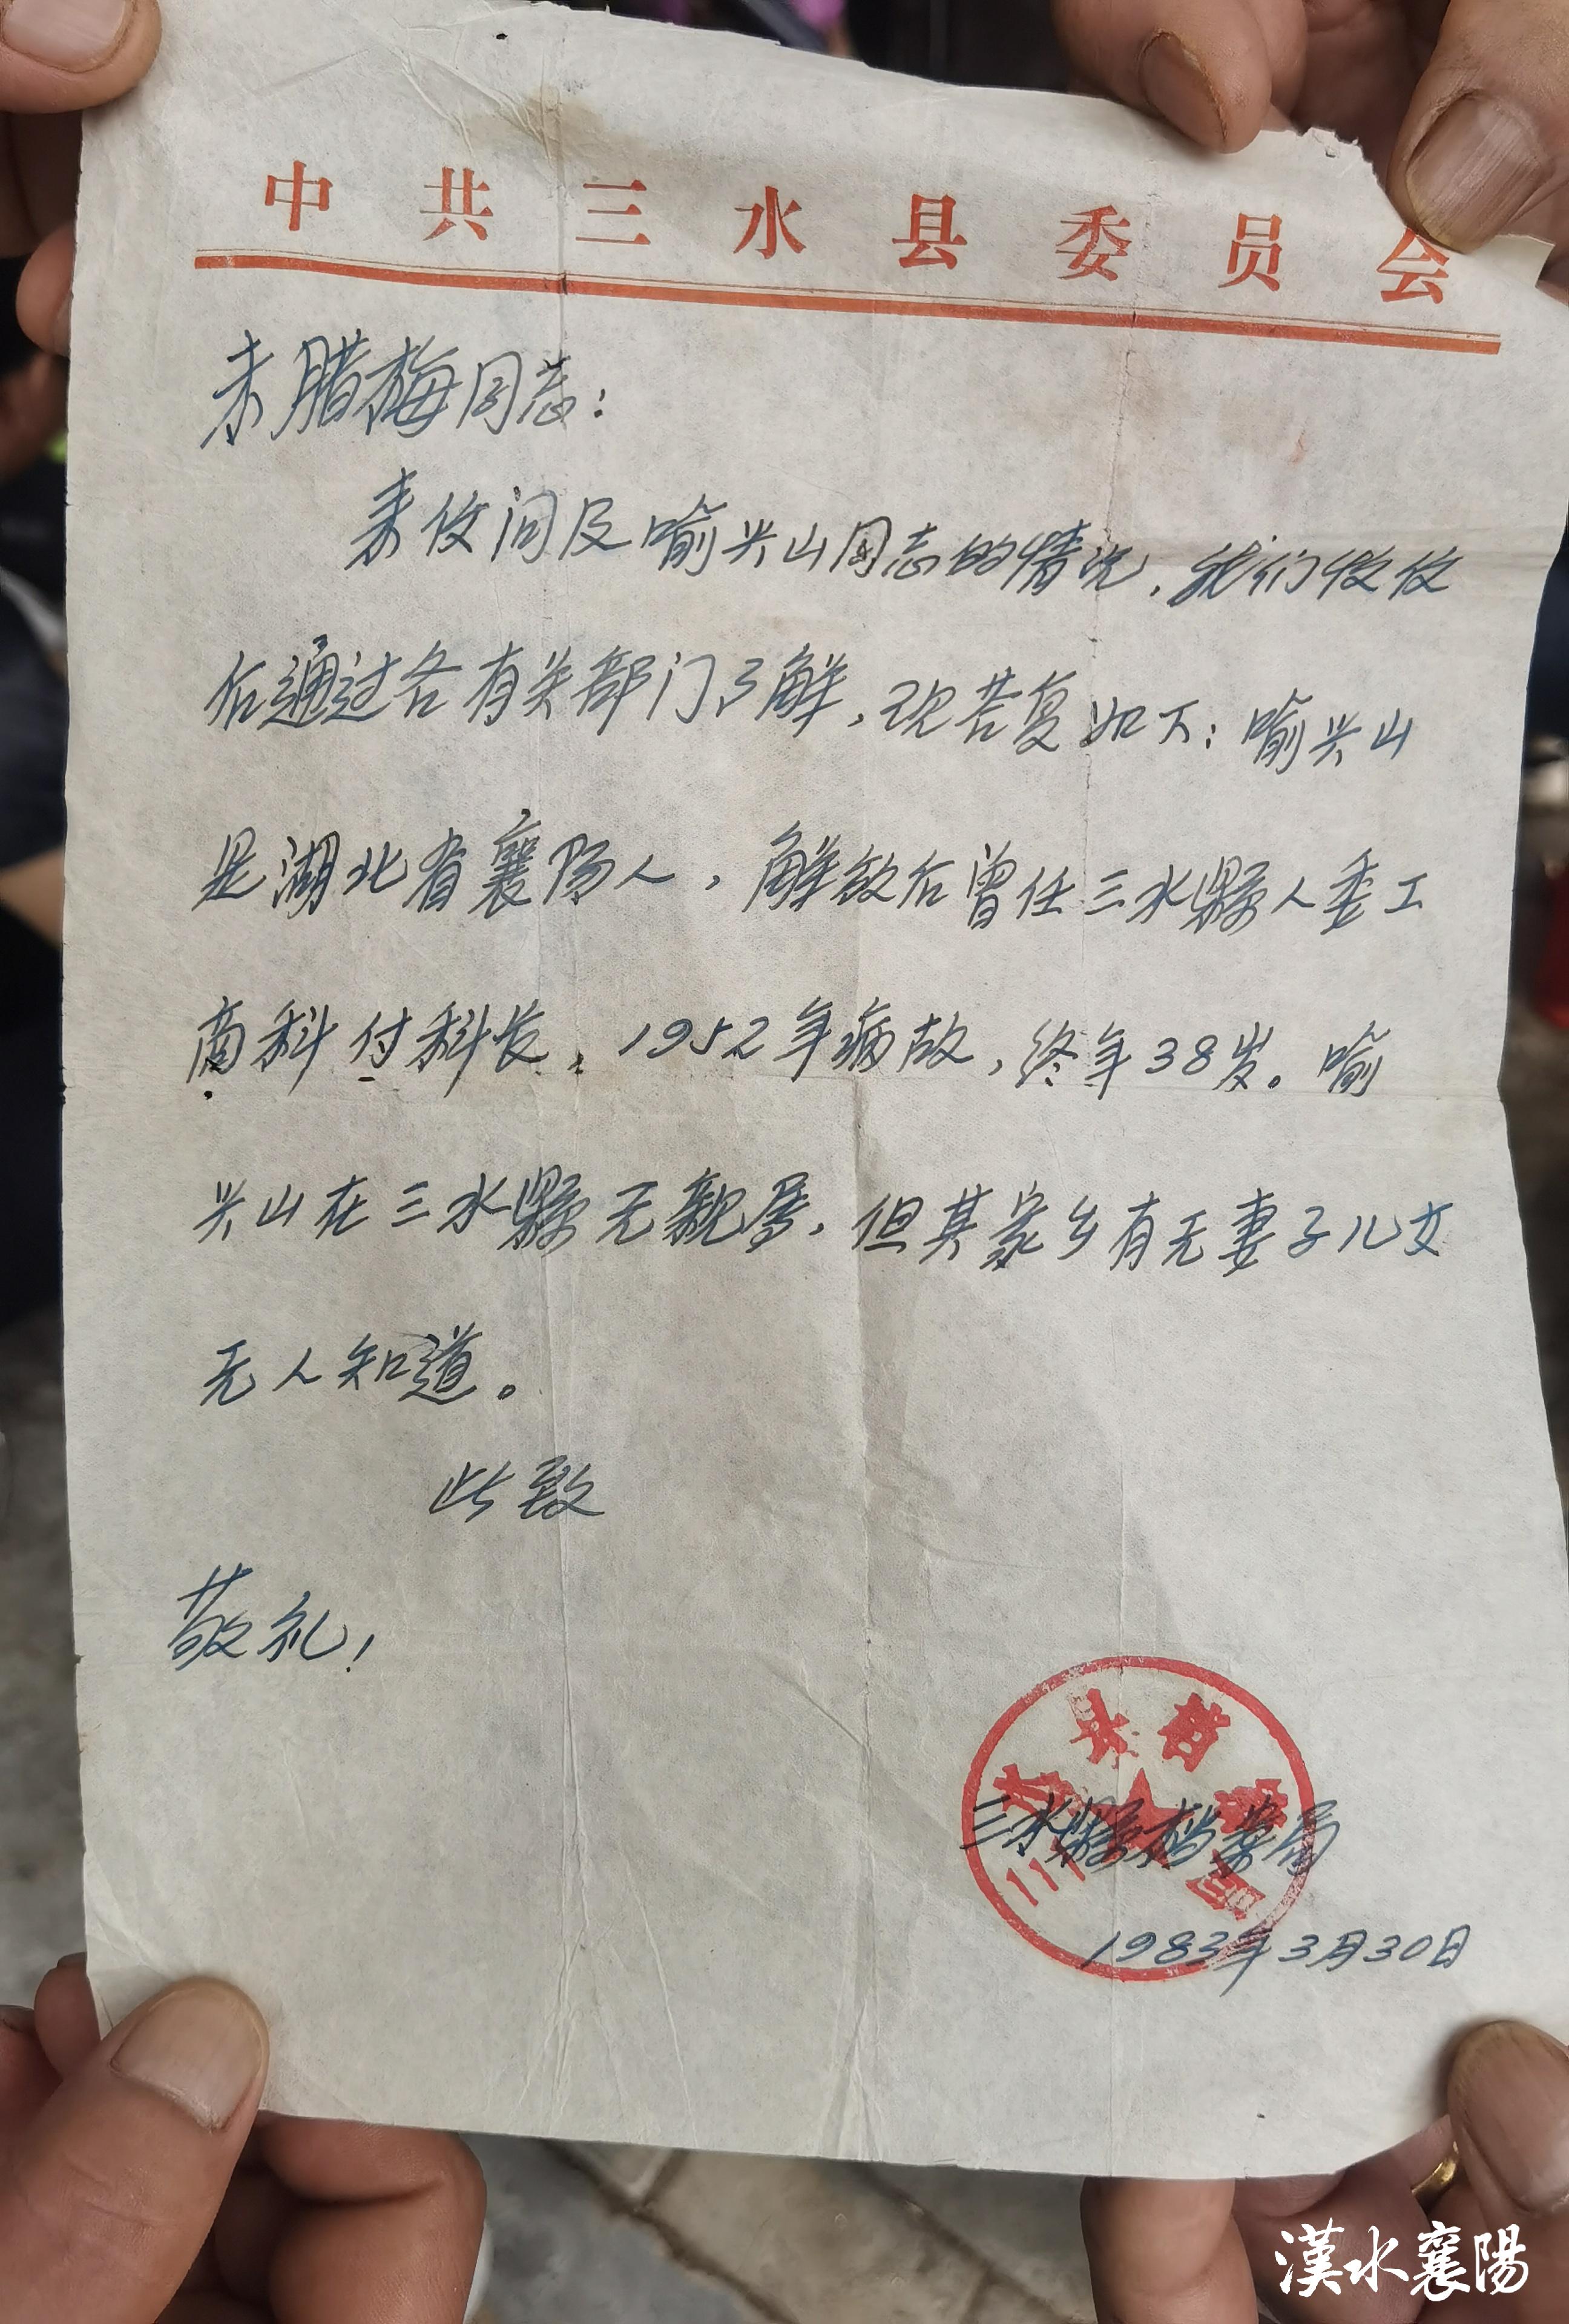 中共三水县委员会
朱腊梅同志：
来信问及喻兴山同志的情况，我们收信
后通过各有关部门了解，现答复如下：喻兴山
是湖北省襄阳人，解放后曾任三水縣人委工
商科付科长，1952年病故，终年38岁。喻
兴山在三水縣无親属，但其家乡有无妻子儿女
无人知道。
此致
敬礼！
三水县档案局
三水縣档案局
1983年3月30日
漢水襄陽